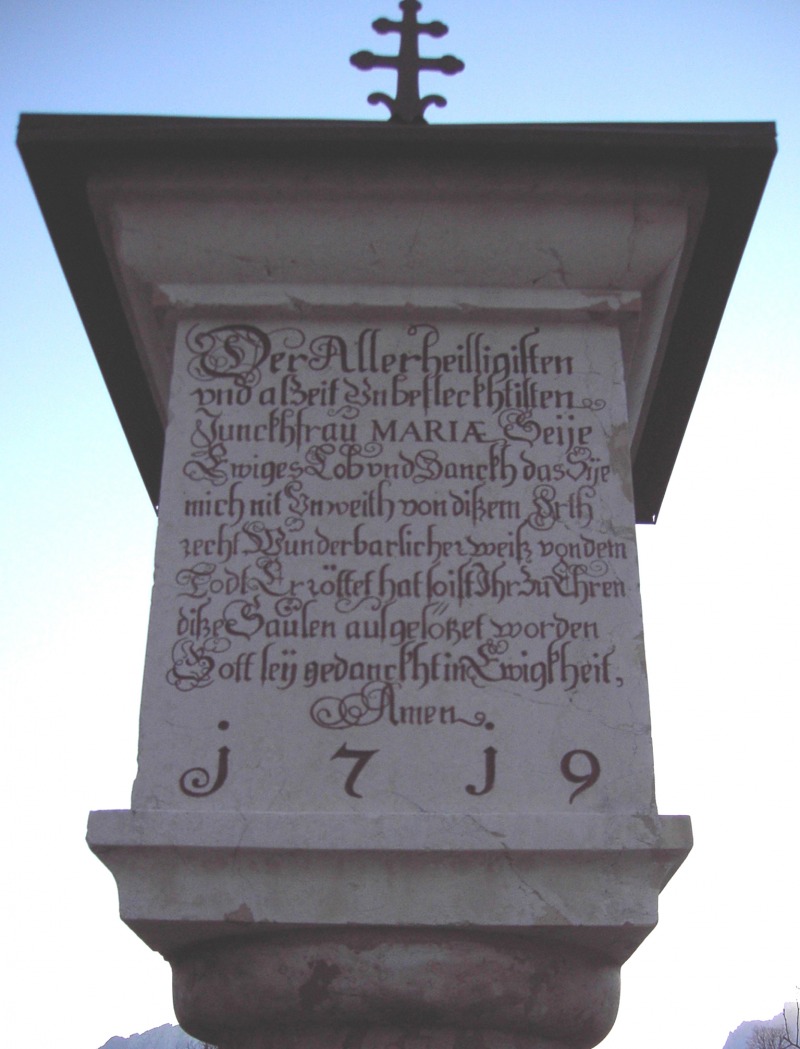 Der Allerheilligisten
vnd alZeit Vnbefleckhtisten
Junckhfrau MARIÆ Seije
Ewiges Lob vnd Danckh das Sÿe
mich nit Vnweith von dißem Orth
recht Wunderbarlicher weiß von dem
Todt Erröttet hat so ist Ihr Zu Ehren
diße Säülen aufgesözet worden
Gott seÿ gedanckht in Ewigkheit,
Amen
j 7 j 9